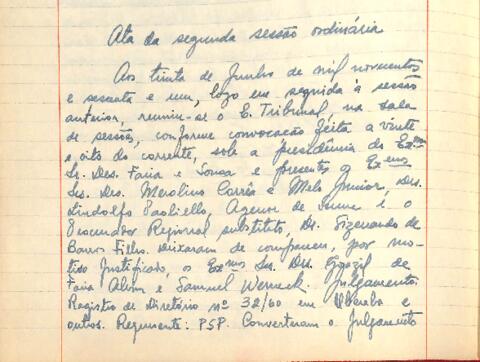 Ata da segunda sessão ordinária
Aos trinta de Junho de mil novecentos
e sessenta e um, logo em seguida à sessão
anterior, reuniu-se o E. Tribunal, na sala
de sessões, conforme convocação feita a vinte
e oito do corrente, sob a presidência do Exmo
Sr. Des. Faria e Sousa e presentes os Exmos
Srs. Drs. Merolino Corrêa e Melo Junior, Drs.
Lindolfo Paoliello, Agenor de Senne e o
Procurador Regional substituto, Dr. Sizenando de
Barros Filho. Deixaram de comparecer, por mo-
tivo justificado, os Exmos Srs. Drs. de
Faria Alvim e Samuel Werneck. Julgamento:
Registro de Diretório nº 32/60 em Uberaba e
outros. Requerente: PSP. Converteram o julgamento